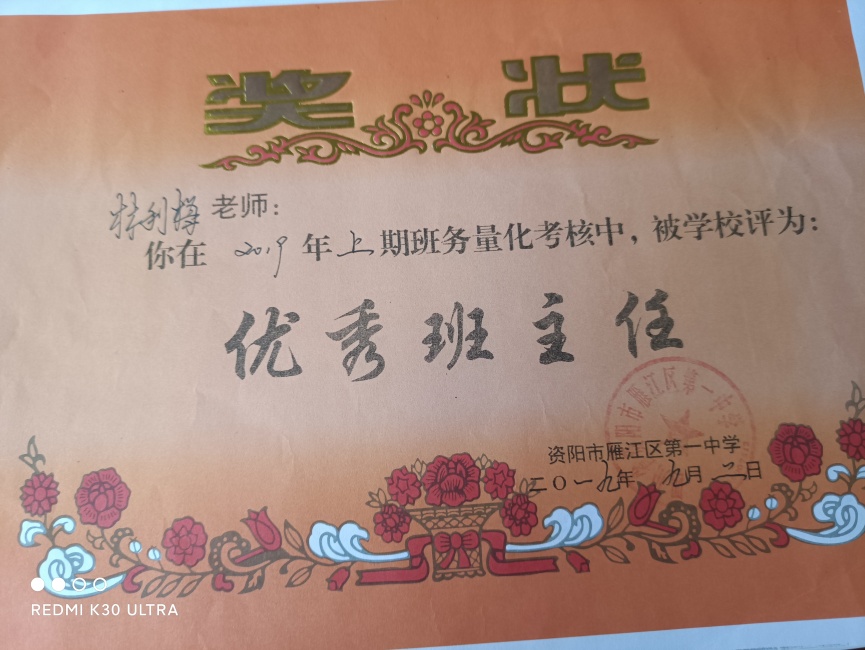 奖状
老师:
你在 2019 年上期班务量化考核中,被学校评为:
优秀班主任
资阳市雁江区第一中学
二〇一九年 九月二日
资阳市雁江区第一中学
REDMI K30 ULTRA